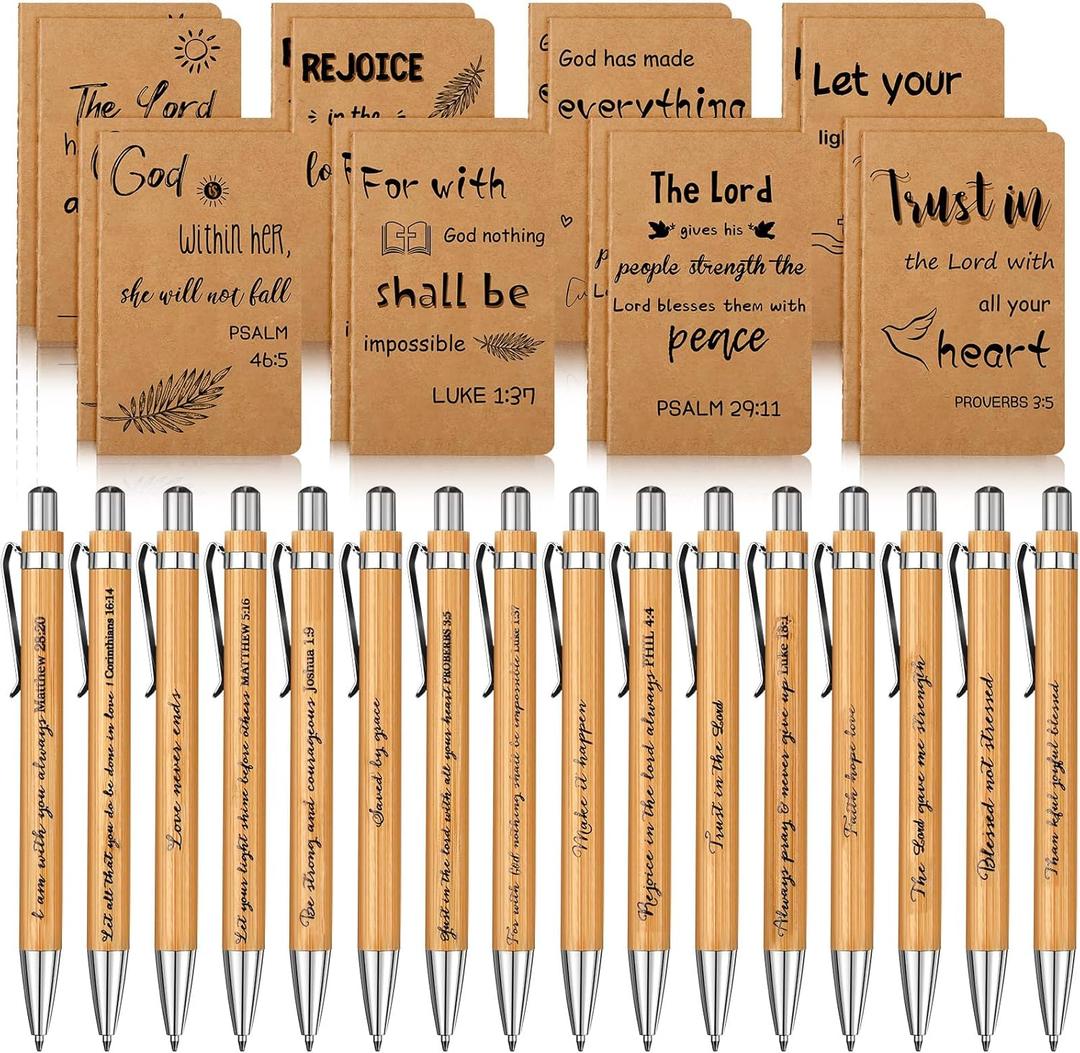 The Lord
h
a
REJOICE
in the
lo
God has made
everything
Let your
ligh
God is
within her,
she will not fall
PSALM
46:5
For with
God nothing
shall be
impossible
LUKE 1:37
The Lord
gives his
people strength the
Lord blesses them with
peace
PSALM 29:11
Trust in
the Lord with
all your
heart
PROVERBS 3:5
I am with you always Matthew 28:20
Let all that you do be done in love 1 Corinthians 16:14
Love never ends
Let your light shine before others MATTHEW 5:16
Be strong and courageous Joshua 1:9
Saved by grace
in the lord with all your heart PROBERBS 3:5
For with nothing shall be impossible Luke 1:37
Make it happen
Rejoice in the lord always PHIL 4:4
Trust in the Lord
Always pray & never give up Luke 18:1
Faith hope love
The Lord gave me strength
Blessed not stressed
Than kful joyful blessed